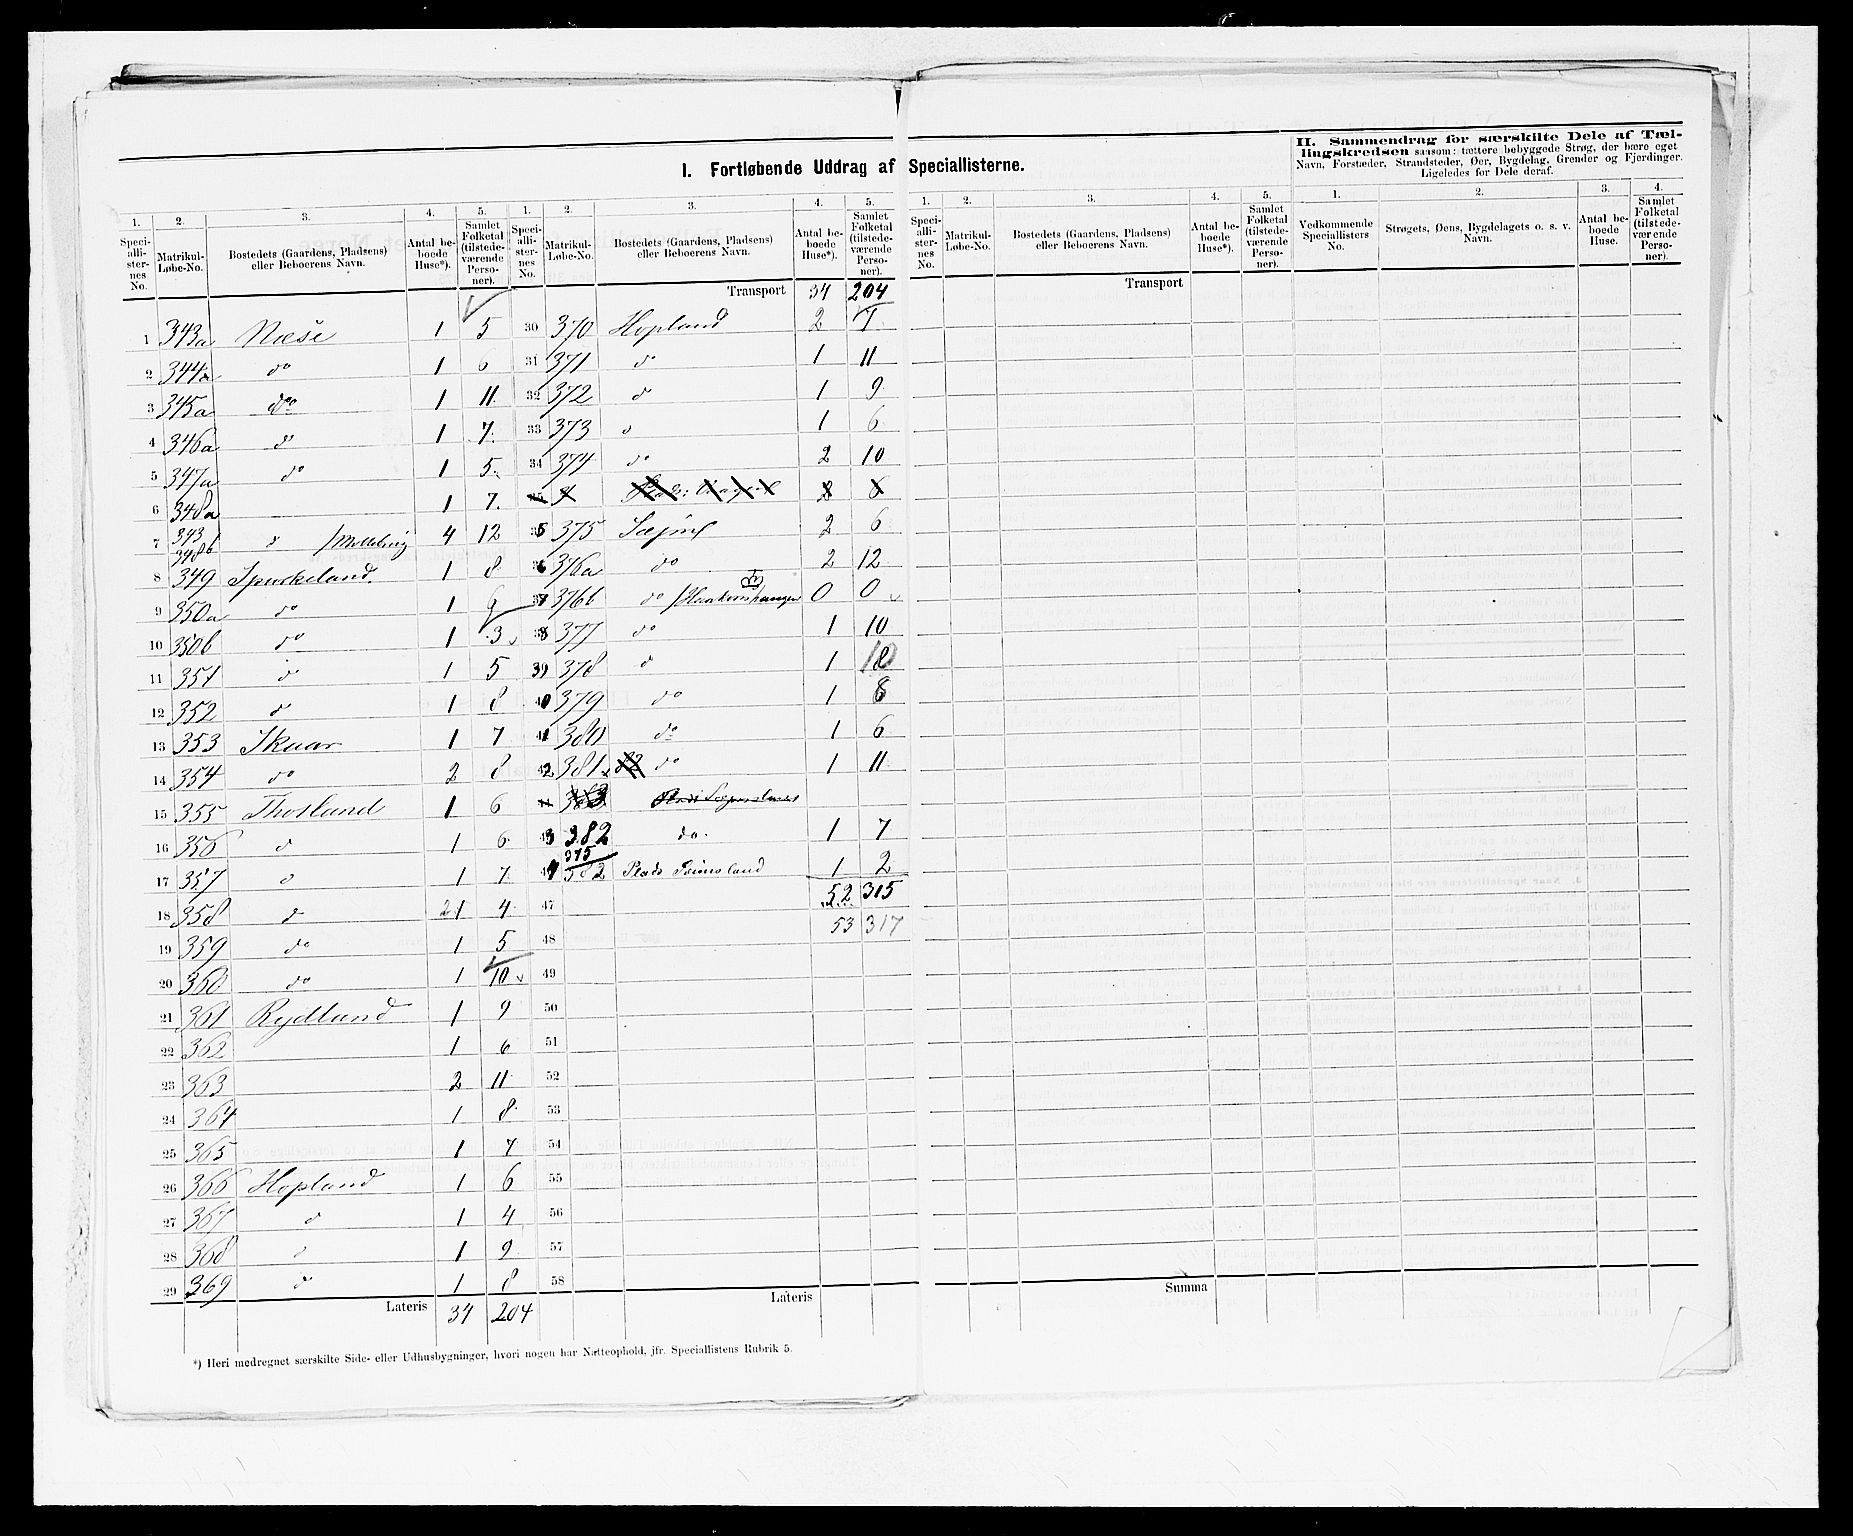 I. Fortløbende Uddrag af Speciallisterne.
II. Sammendrag for særskilte Dele af Tællingskredsen saasom: tættere bebyggede Strøg, der bære eget
Navn, Forstæder, Strandsteder, Øer, Bygdelag, Grender og Fjerdinger.
Ligeledes for Dele deraf.
1. 2. 3. 4. 5. 1. 2. 3. 4. 5. 1. 2. 3. 4. 5. 1. 2. 3. 4.
Speciallisternes No. Matrikul-Løbe-No. Bostedets (Gaardens, Pladsens) eller Beboerens Navn. Antal beboede Huse*). Samlet Folketal (tilstedeværende Personer).
Speciallisternes No. Matrikul-Løbe-No. Bostedets (Gaardens, Pladsens) eller Beboerens Navn. Antal beboede Huse*). Samlet Folketal (tilstedeværende Personer).
Speciallisternes No. Matrikul-Løbe-No. Bostedets (Gaardens, Pladsens) eller Beboerens Navn. Antal beboede Huse*). Samlet Folketal (tilstedeværende Personer).
Vedkommende Speciallisters No. Strøgets, Øens, Bygdelagets o. s. v. Navn. Antal beboede Huse. Samlet Folketal (tilstedeværende Personer).
1 343a Næse 1 5
2 344a do 1 6
3 345a do 1 11
4 346a do 1 7
5 347a do 1 5
6 348a 1 7
7 343 348b d 4 12
8 349 Spurkeland 1 8
9 350a do 1 9
10 350b do 1 3
11 351 d 1 5
12 352 d 1 8
13 353 Skaar 1 7
14 354 do 2 8
15 355 Thosland 1 6
16 356 d 1 6
17 357 d 1 7
18 358 d 21 4
19 359 do 1 5
20 360 do 1 10
21 361 Rydland 1 9
22 362 1 6
23 363 2 11
24 364 1 8
25 365 1 7
26 366 Hopland 1 6
27 367 d 1 4
28 368 d 1 9
29 369 d 1 8
Lateris 34 204
Transport 34 204
30 370 Hopland 2
31 371 do 1 11
32 372 d 1 9
33 373 d 1 6
34 374 do 2 10
35 375 2 6
36 376a do 2 12
37 376b do 0 0
38 377 do 1 10
39 378 d 1
40 379 do 1 8
41 380 do 1 6
42 381 do 1 11
383
43 382 do 1 7
44 375/382 Plads 1 2
47 52 315
53 317
48
49
50
51
52
53
54
55
56
57
58
Lateris
Transport
Summa
*) Heri medregnet særskilte Side- eller Udhusbygninger, hvori nogen har Natteophold, jfr. Speciallistens Rubrik 5.